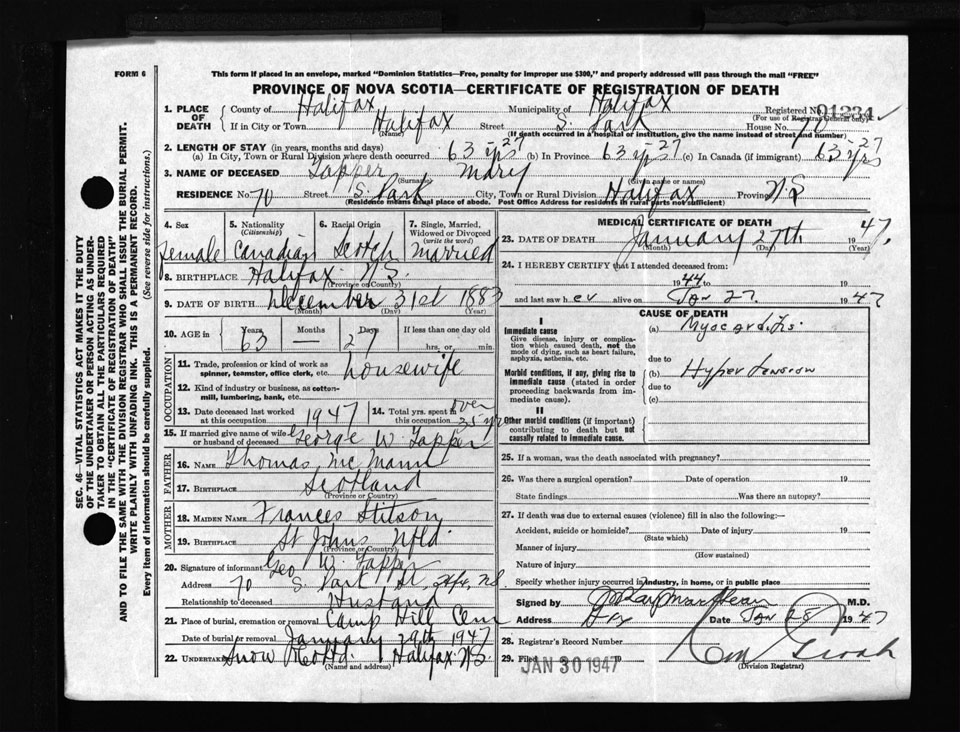 FORM 6
This form if placed in an envelope, marked "Dominion Statistics—Free, penalty for improper use $300," and properly addressed will pass through the mail "FREE"
PROVINCE OF NOVA SCOTIA—CERTIFICATE OF REGISTRATION OF DEATH
SEC. 46—VITAL STATISTICS ACT MAKES IT THE DUTY
OF THE UNDERTAKER OR PERSON ACTING AS UNDER-
TAKER TO OBTAIN ALL THE PARTICULARS REQUIRED
IN THE "CERTIFICATE OF REGISTRATION OF DEATH"
AND TO FILE THE SAME WITH THE DIVISION REGISTRAR WHO SHALL ISSUE THE BURIAL PERMIT.
WRITE PLAINLY WITH UNFADING INK. THIS IS A PERMANENT RECORD.
Every item of information should be carefully supplied. (See reverse side for instructions.)
1. PLACE OF DEATH County of Halifax Municipality of Halifax Registered No. 01234
(For use of Registrar General only)
If in City or Town Halifax Street S. Park House No. 70
(Name) (If death occurred in a hospital or institution, give the name instead of street and number)
2. LENGTH OF STAY (in years, months and days)
(a) In City, Town or Rural Division where death occurred 63 yrs 27 (b) In Province 63 yrs 27 (c) In Canada (if immigrant) 63 yrs 27
3. NAME OF DECEASED Tapper Mary
(Surname) (Given name or names)
RESIDENCE No. 70 Street S. Park City, Town or Rural Division Halifax Province N.S
(Residence means usual place of abode. Post Office Address for residents in rural parts not sufficient)
4. Sex 5. Nationality (Citizenship) 6. Racial Origin 7. Single, Married, Widowed or Divorced (write the word)
Female Canadian Scotch Married
8. BIRTHPLACE Halifax N.S.
(Province or Country)
9. DATE OF BIRTH December 31st 1883
(Month) (Day) (Year)
10. AGE in Years Months Days If less than one day old
63 — 27 hrs. or min.
OCCUPATION
11. Trade, profession or kind of work as spinner, teamster, office clerk, etc. housewife
12. Kind of industry or business, as cotton-mill, lumbering, bank, etc.
13. Date deceased last worked at this occupation 1947 14. Total yrs. spent in this occupation over 35 yrs
15. If married give name of wife or husband of deceased George W. Tapper
FATHER
16. NAME Thomas Mc Mann
17. BIRTHPLACE Scotland
(Province or Country)
MOTHER
18. MAIDEN NAME Frances Stitson
19. BIRTHPLACE St Johns Nfld.
(Province or Country)
20. Signature of informant Geo W. Tapper
Address 70 S. Park St Hfx, N.S
Relationship to deceased Husband
21. Place of burial, cremation or removal Camp Hill Cem
Date of burial or removal January 29th 1947
22. UNDERTAKER Snow & Co Ltd. Halifax N.S.
(Name and address)
MEDICAL CERTIFICATE OF DEATH
23. DATE OF DEATH January 27th 1947.
(Month) (Day) (Year)
24. I HEREBY CERTIFY that I attended deceased from:
1944 to
and last saw her alive on Jan 27. 1947
CAUSE OF DEATH
I
Immediate cause (a) Myocarditis.
Give disease, injury or complication which caused death, not the mode of dying, such as heart failure, asphyxia, asthenia, etc.
due to
Morbid conditions, if any, giving rise to immediate cause (stated in order proceeding backwards from immediate cause). (b) Hypertension
due to
(c)
II
Other morbid conditions (if important) contributing to death but not causally related to immediate cause.
25. If a woman, was the death associated with pregnancy?
26. Was there a surgical operation? Date of operation 19
State findings Was there an autopsy?
27. If death was due to external causes (violence) fill in also the following:—
Accident, suicide or homicide? Date of injury 19
(State which)
Manner of injury
(How sustained)
Nature of injury
Specify whether injury occurred in industry, in home, or in public place
Signed by M.D.
Address Hfx Date Jan 28 1947
28. Registrar's Record Number
29. Filed JAN 30 1947 19
(Division Registrar)